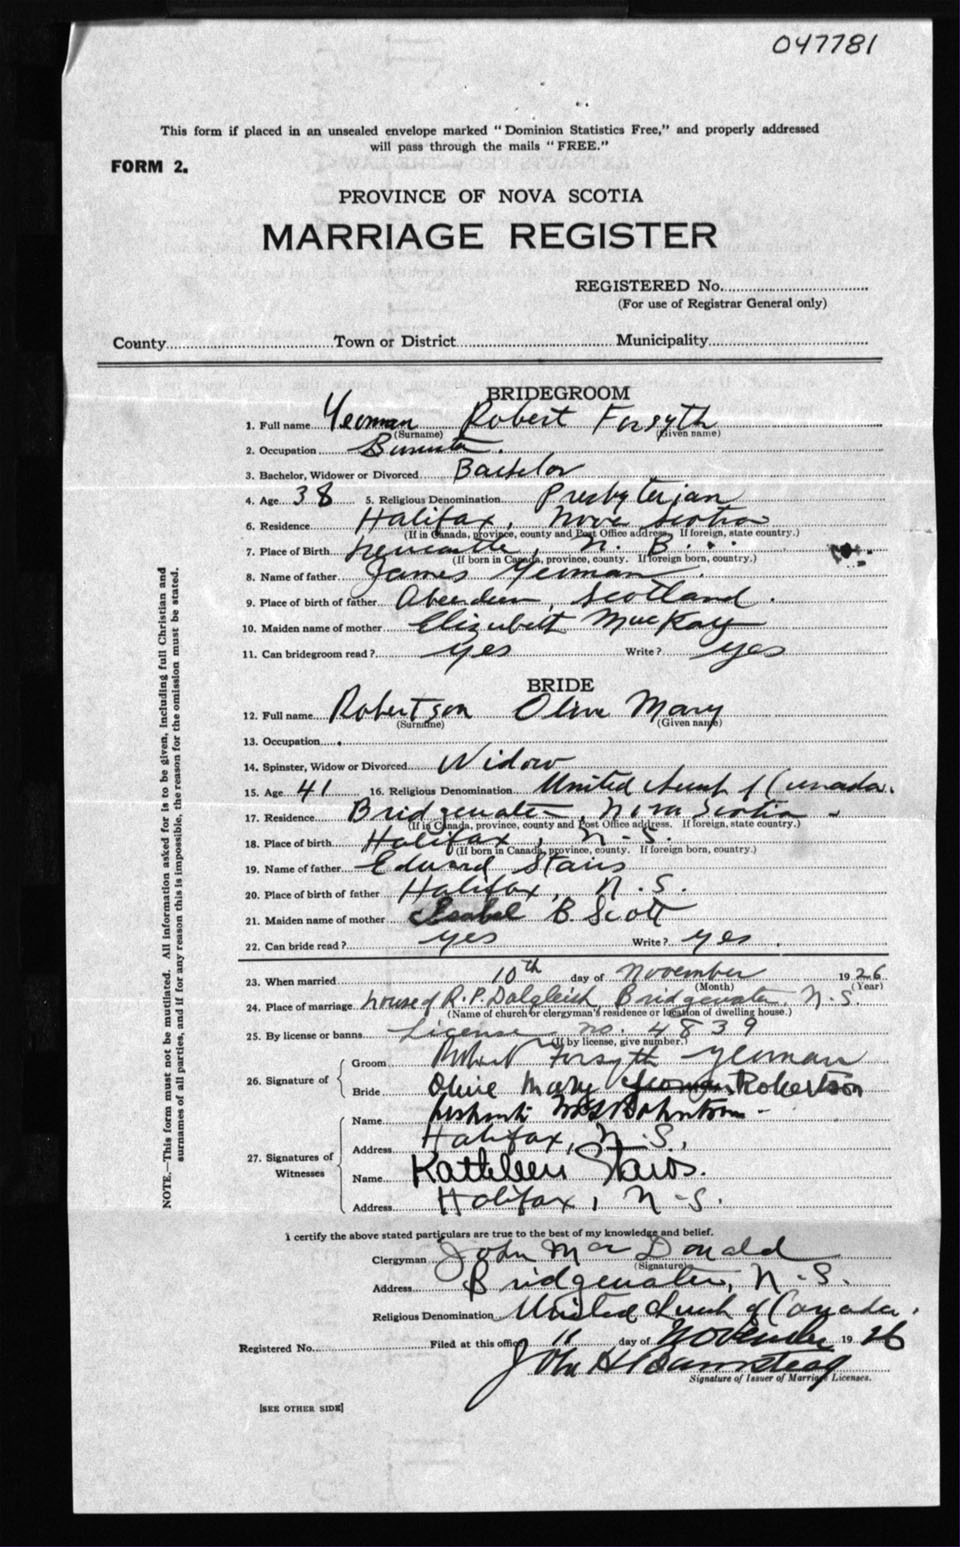 047781
This form if placed in an unsealed envelope marked "Dominion Statistics Free," and properly addressed
will pass through the mails "FREE."
FORM 2.
PROVINCE OF NOVA SCOTIA
MARRIAGE REGISTER
REGISTERED No.
(For use of Registrar General only)
County Town or District Municipality
BRIDEGROOM
1. Full name Yeoman Robert Forsyth
(Surname) (Given name)
2. Occupation
3. Bachelor, Widower or Divorced Bachelor
4. Age 38 5. Religious Denomination Presbyterian
6. Residence Halifax, Nova Scotia
(If in Canada, province, county and Post Office address. If foreign, state country.)
7. Place of Birth Newcastle, N. B.
(If born in Canada, province, county. If foreign born, country.)
8. Name of father James Yeoman.
9. Place of birth of father Aberdeen, Scotland.
10. Maiden name of mother Elizabeth MacKay
11. Can bridegroom read? yes Write? yes
BRIDE
12. Full name Robertson Olive Mary
(Surname) (Given name)
13. Occupation
14. Spinster, Widow or Divorced Widow
15. Age 41 16. Religious Denomination United Church of Canada.
17. Residence Bridgewater, Nova Scotia
(If in Canada, province, county and Post Office address. If foreign, state country.)
18. Place of birth Halifax, N-S.
(If born in Canada, province, county. If foreign born, country.)
19. Name of father Edward Stairs
20. Place of birth of father Halifax, N.S.
21. Maiden name of mother Isabel B. Scott
22. Can bride read? yes Write? yes.
23. When married 10th day of November 1926
(Month) (Year)
24. Place of marriage house of R. P. Dalgleish Bridgewater, N-S.
(Name of church or clergyman's residence or location of dwelling house.)
25. By license or banns License no. 4839
(If by license, give number.)
26. Signature of
Groom Robert Forsyth Yeoman
Bride Olive Mary Yeoman Robertson
27. Signatures of Witnesses
Name
Address Halifax, N-S,
Name Kathleen Stairs.
Address Halifax, N-S.
I certify the above stated particulars are true to the best of my knowledge and belief.
Clergyman John MacDonald
(Signature)
Address Bridgewater, N-S.
Religious Denomination United Church of Canada.
Registered No. Filed at this office 11 day of November 1926
John H
Signature of Issuer of Marriage Licenses.
[SEE OTHER SIDE]
NOTE.—This form must not be mutilated. All information asked for is to be given, including full Christian and
surnames of all parties, and if for any reason this is impossible, the reason for the omission must be stated.